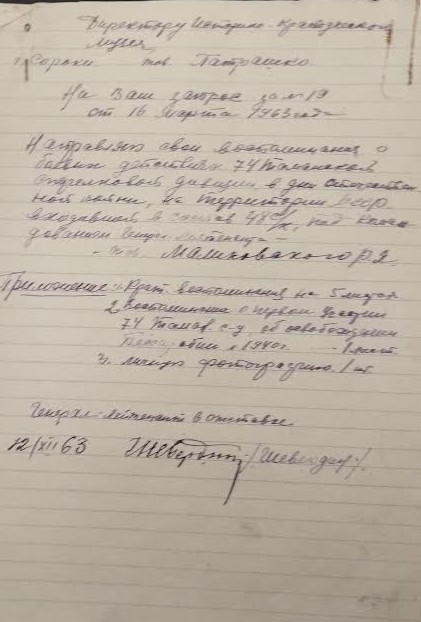 Директору Историко-Краеведческого
музея
г. Сороки тов. Патрашко.
На Ваш запрос за № 19
от 16 марта 1963 года
Направляю свои воспоминания о
боевых действиях 74 Таманской
стрелковой дивизии в дни отечествен
ной войны, на территории МССР
входившей в состав 48 с/к, под коман
дованием генерал-лейтенанта
- тов. Малиновского Р.Я.
Приложение: 1. Крат. воспоминания на 5 листах
2. Воспоминания о первом
74 Таман. с-д. об освобождении
Бессарабии в 1940 г. - 1 лист.
3. личную фотографию. 1 шт.
Генерал-Лейтенант в отставке.
12/XII 63 /Шевердин/